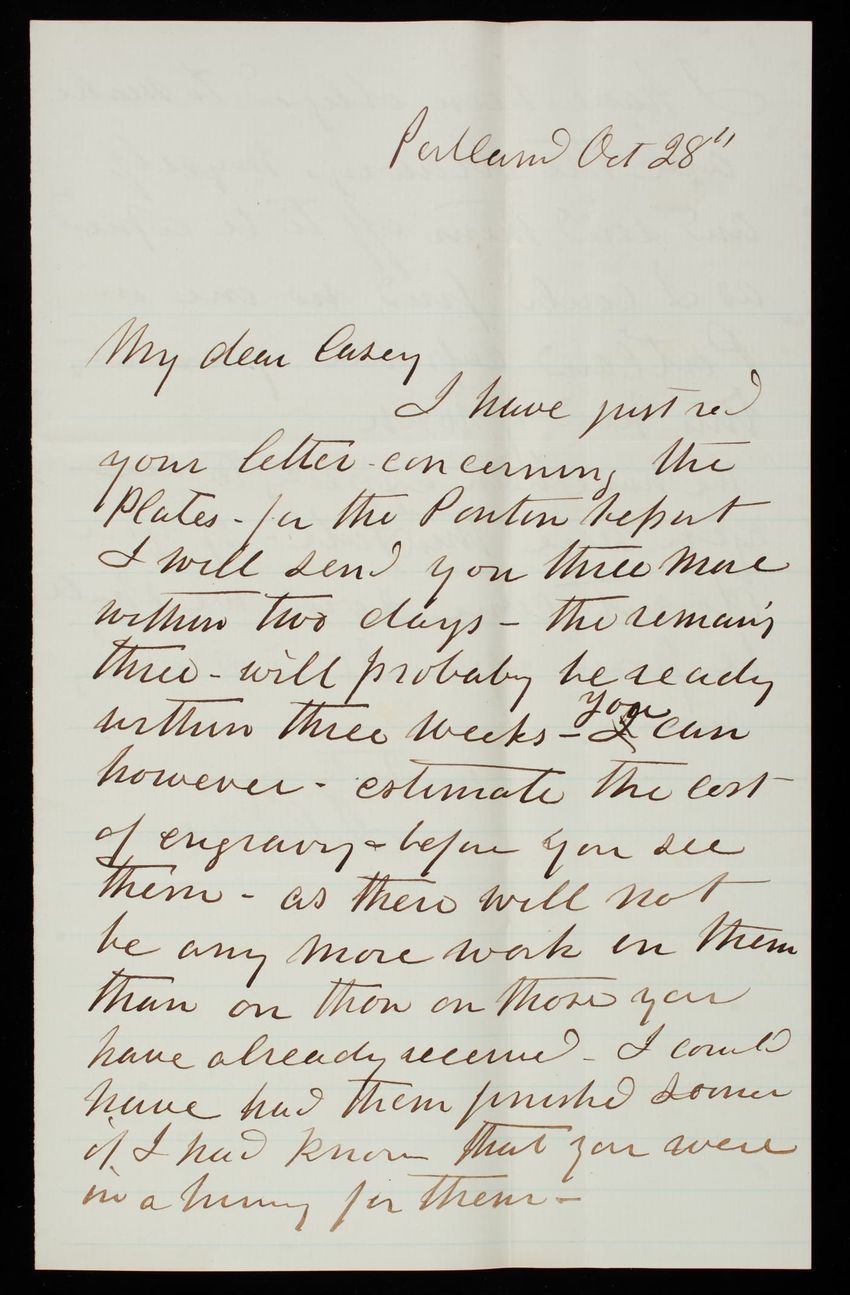 Portland Oct 28"
My dear Casey
I have just red
your letter - concerning the
Plates - for the Ponton Report
I will send you three more
within two days - the remain'g
three - will probably be ready
within three weeks - you can
however - estimate the cost
of engraving - before you see
them - as there will not
be any more work on them
than on thon on those you
have already received - I could
have had them finished sooner
if I had known that you were
in a hurry for them -